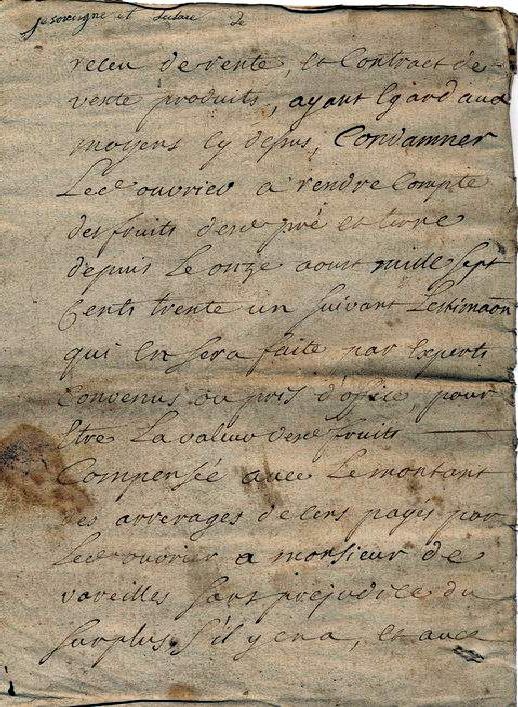 et
de
receu de rente, et Contract de
vente produits, ayant Egard aux
moyens Cy depus, Condamner
Led.^t ouvrier a rendre Compte
des fruits desd.^t pré et terre
depuis Le onze aoust mille sept
Cents trente un suivant Lestimaõn
qui En sera faite par Experts
Convenus ou pris d'office, pour
Etre La valeur desd.^t fruits
Compensée avec Le montant
des arrerages de Cens payés par
Led.^t ouvrier a monsieur de
vareilles sans prejudice du
surplus S'il y en a, et avec